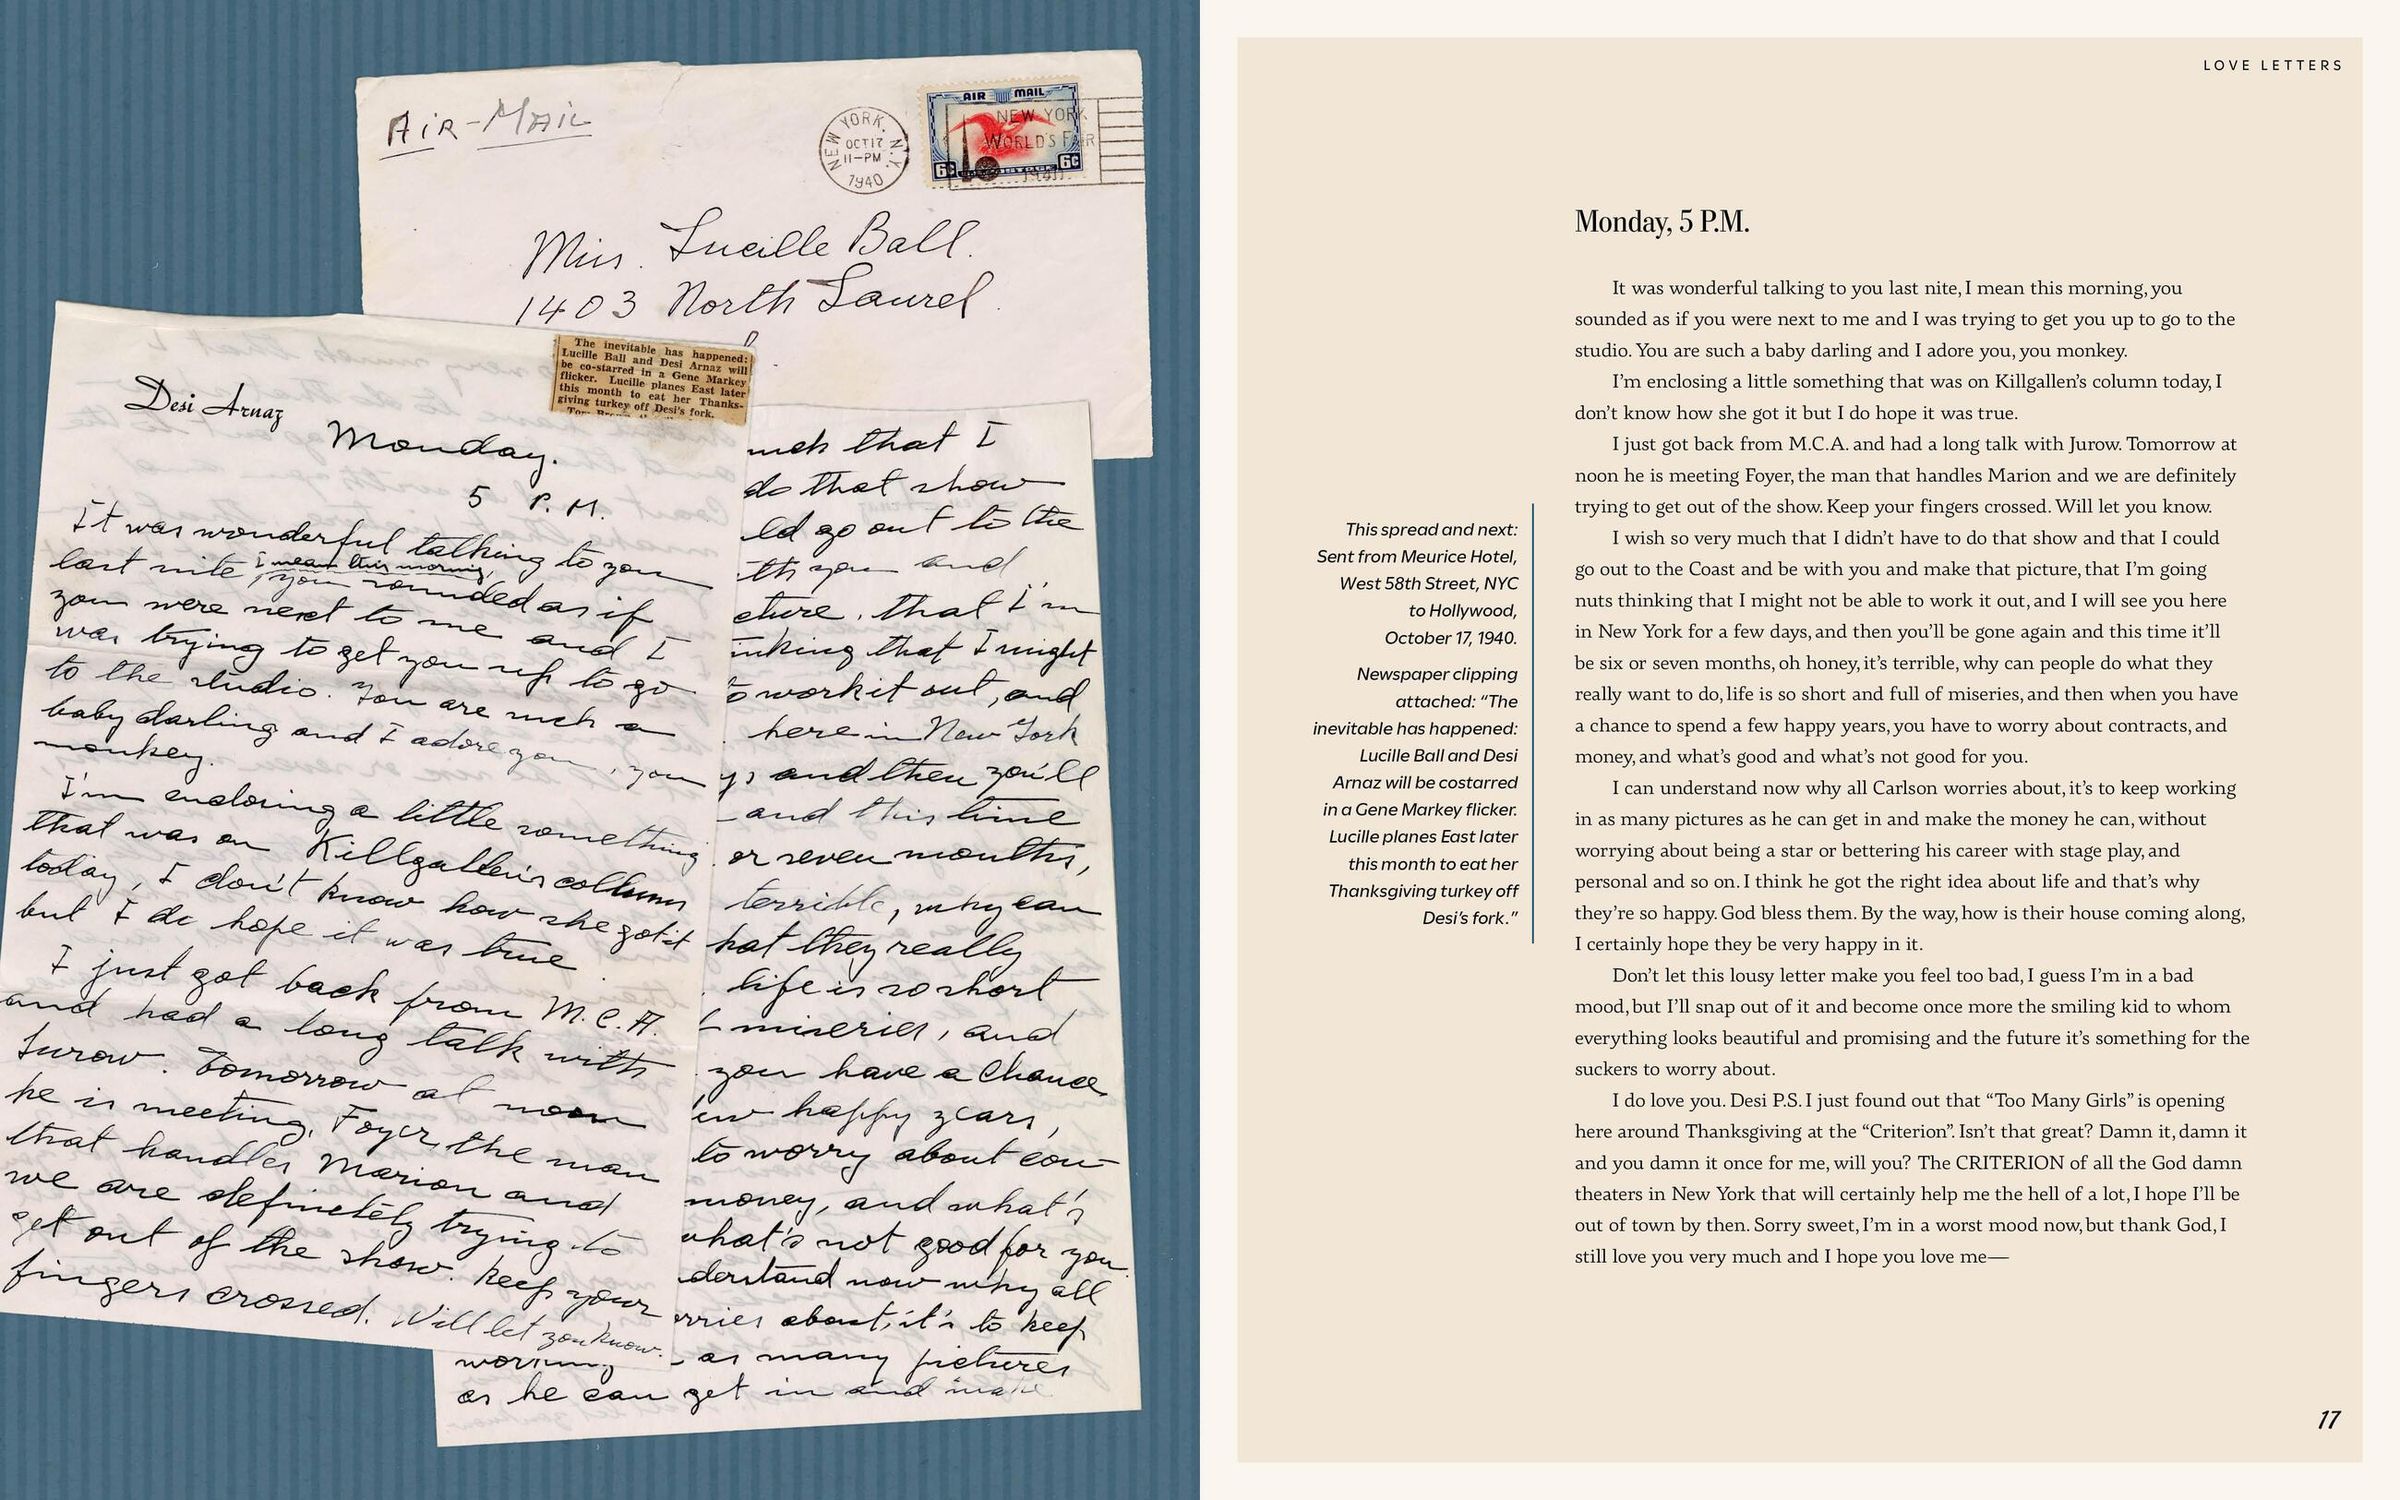 AIR-MAIL
NEW YORK, N.Y.
OCT 17
11-PM
1940
AIR MAIL
NEW YORK
WORLD'S FAIR
1940
6¢ 6¢
Miss. Lucille Ball.
1403 North Laurel
The inevitable has happened:
Lucille Ball and Desi Arnaz will
be co-starred in a Gene Markey
flicker. Lucille planes East later
this month to eat her Thanks-
giving turkey off Desi's fork.
Desi Arnaz
Monday.
5 P.M.
It was wonderful talking to you
last nite, I mean this morning, you sounded as if
you were next to me and I
was trying to get you up to go
to the studio. You are such a
baby darling and I adore you, you
monkey.
I'm enclosing a little something
that was on Killgallen's collumn
today, I don't know how she got it
but I do hope it was true
I just got back from M.C.A.
and had a long talk with
Jurow. Tomorrow at noon
he is meeting, Foyer, the man
that handles Marion and
we are definetely trying to
get out of the show. Keep your
fingers crossed. Will let you know.
uch that I
do that show
ld go out to the
th you and
cture, that I'm
inking that I might
to work it out, and
here in New York
ys and then you'll
and this time
or seven months,
terrible, why can
hat they really
life is so short
miseries, and
you have a chance
ew happy years,
to worry about con-
money, and what's
what's not good for you.
derstand now why all
orries about, it's to keep
working as many pictures
as he can get in and make
LOVE LETTERS
Monday, 5 P.M.
It was wonderful talking to you last nite, I mean this morning, you
sounded as if you were next to me and I was trying to get you up to go to the
studio. You are such a baby darling and I adore you, you monkey.
I'm enclosing a little something that was on Killgallen's column today, I
don't know how she got it but I do hope it was true.
I just got back from M.C.A. and had a long talk with Jurow. Tomorrow at
noon he is meeting Foyer, the man that handles Marion and we are definitely
trying to get out of the show. Keep your fingers crossed. Will let you know.
I wish so very much that I didn't have to do that show and that I could
go out to the Coast and be with you and make that picture, that I'm going
nuts thinking that I might not be able to work it out, and I will see you here
in New York for a few days, and then you'll be gone again and this time it'll
be six or seven months, oh honey, it's terrible, why can people do what they
really want to do, life is so short and full of miseries, and then when you have
a chance to spend a few happy years, you have to worry about contracts, and
money, and what's good and what's not good for you.
I can understand now why all Carlson worries about, it's to keep working
in as many pictures as he can get in and make the money he can, without
worrying about being a star or bettering his career with stage play, and
personal and so on. I think he got the right idea about life and that's why
they're so happy. God bless them. By the way, how is their house coming along,
I certainly hope they be very happy in it.
Don't let this lousy letter make you feel too bad, I guess I'm in a bad
mood, but I'll snap out of it and become once more the smiling kid to whom
everything looks beautiful and promising and the future it's something for the
suckers to worry about.
I do love you. Desi P.S. I just found out that “Too Many Girls” is opening
here around Thanksgiving at the “Criterion”. Isn't that great? Damn it, damn it
and you damn it once for me, will you? The CRITERION of all the God damn
theaters in New York that will certainly help me the hell of a lot, I hope I'll be
out of town by then. Sorry sweet, I'm in a worst mood now, but thank God, I
still love you very much and I hope you love me—
This spread and next:
Sent from Meurice Hotel,
West 58th Street, NYC
to Hollywood,
October 17, 1940.
Newspaper clipping
attached: “The
inevitable has happened:
Lucille Ball and Desi
Arnaz will be costarred
in a Gene Markey flicker.
Lucille planes East later
this month to eat her
Thanksgiving turkey off
Desi's fork.”
17